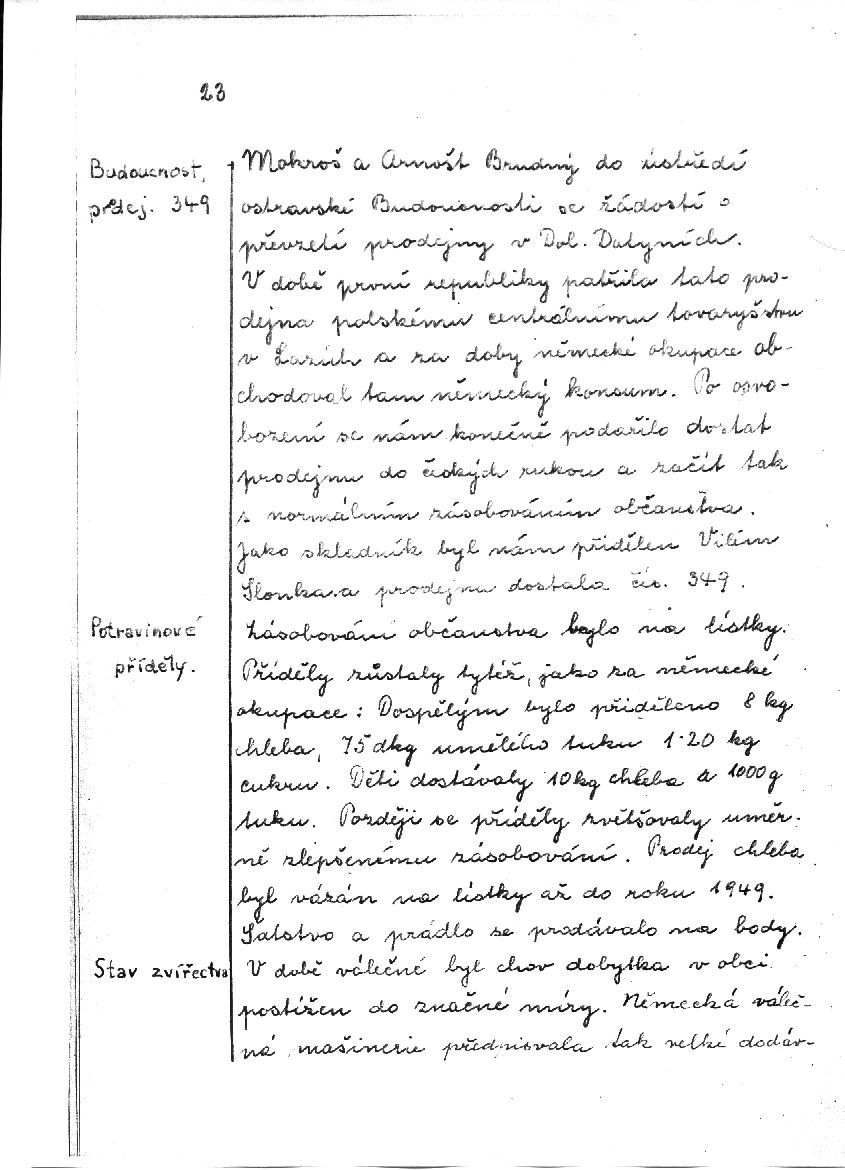 23
Budoucnost,
prodej. 349
Mokroš a Arnošt Brudný do ústředí
ostravské Budoucnosti se žádostí o
převzetí prodejny v Dol. Datyních.
V době první republiky patřila tato pro-
dejna polskému centrálnímu tovaryšstvu
v Lazích a za doby německé okupace ob-
chodoval tam německý konsum. Po osvo-
bození se nám konečně podařilo dostat
prodejnu do českých rukou a začít tak
s normálním zásobováním občanstva.
Jako skladník byl nám přidělen Vilém
Slonka a prodejna dostala čís. 349.
Potravinové
příděly.
Zásobování občanstva bylo na lístky.
Příděly zůstaly tytéž, jako za německé
okupace: Dospělým bylo přiděleno 8 kg
chleba, 75 dkg umělého tuku 1·20 kg
cukru. Děti dostávaly 10 kg chleba a 1000 g
tuku. Později se příděly zvětšovaly uměr-
ně zlepšenému zásobování. Prodej chleba
byl vázán na lístky až do roku 1949.
Šatstvo a prádlo se prodávalo na body.
Stav zvířectva
V době válečné byl chov dobytka v obci
postižen do značné míry. Německá váleč-
ná mašinerie předpisovala tak velké dodáv-